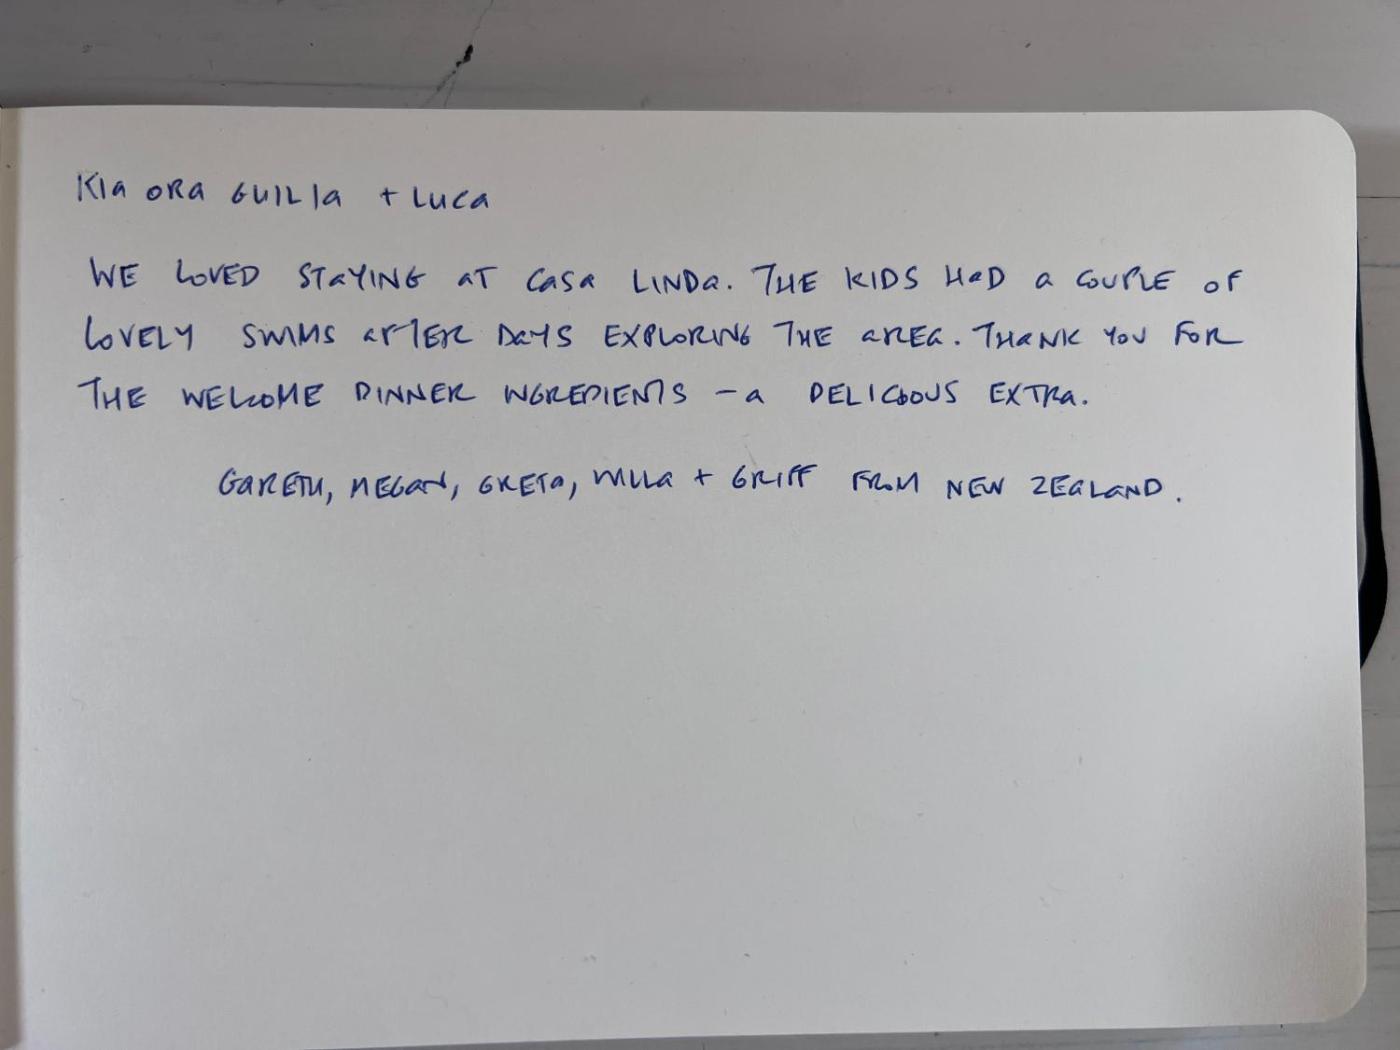 KIA ORA GUILIA + LUCA
WE LOVED STAYING AT CASA LINDA. THE KIDS HAD A COUPLE OF
LOVELY SWIMS AFTER DAYS EXPLORING THE AREA. THANK YOU FOR
THE WELCOME DINNER INGREDIENTS - A DELICIOUS EXTRA.
GARETH, MEGAN, GRETA, WILLA + GRIFF FROM NEW ZEALAND.